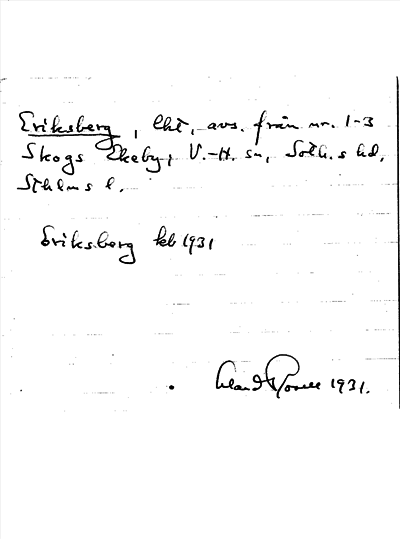 Eriksberg, lht, avs. från nr. 1-3
Skogs Ekeby, V.-H. sn, Soth.s hd,
Sthlms l.
Eriksberg kb 1931
1931.